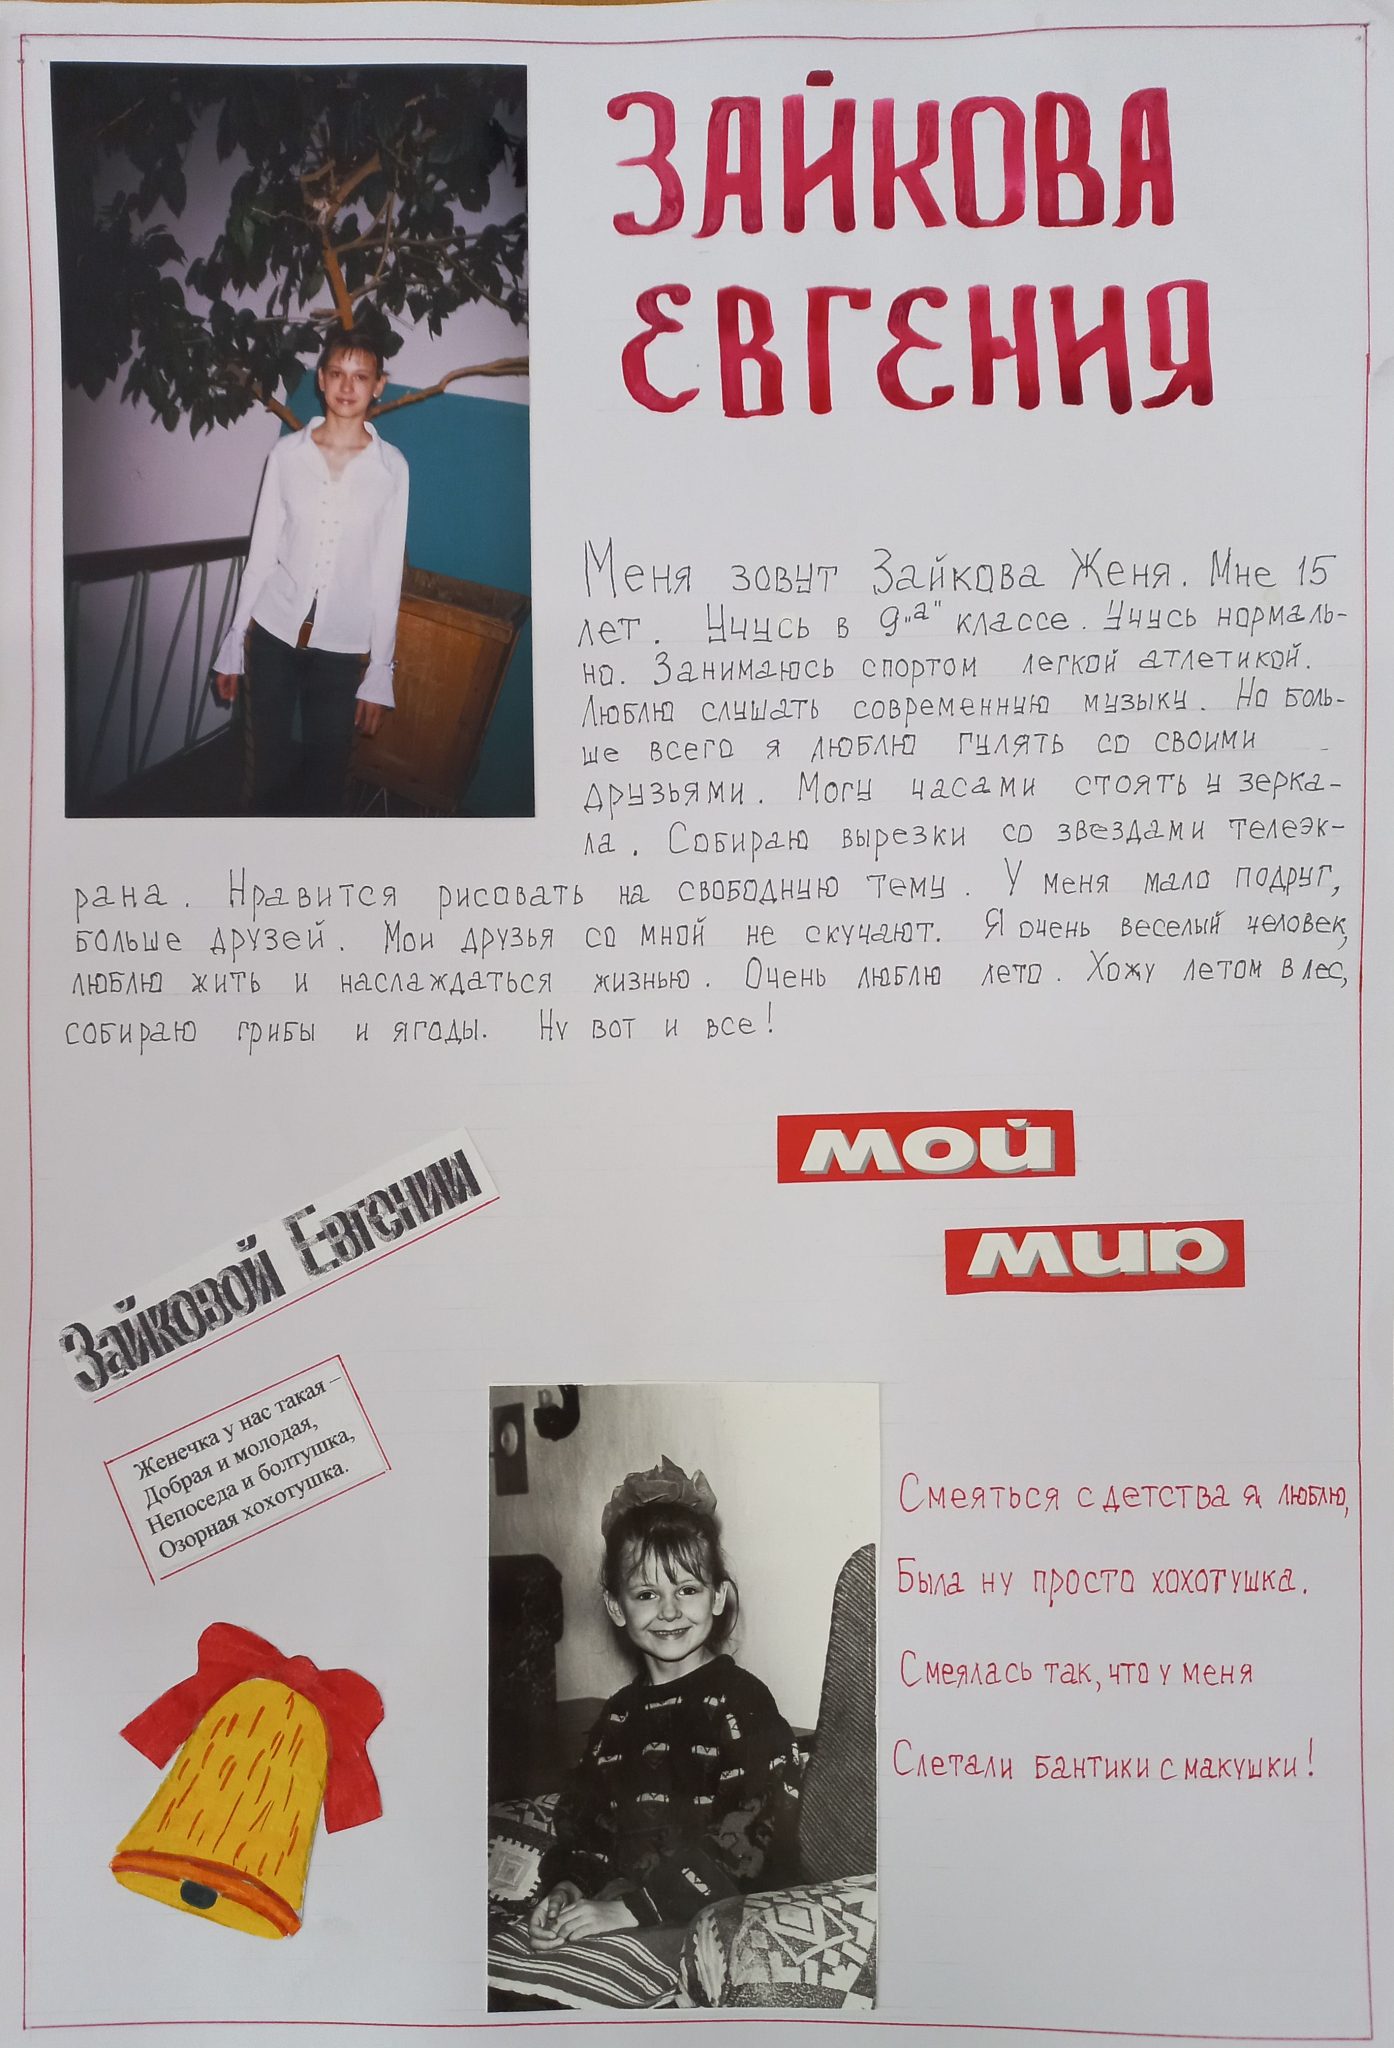 ЗАЙКОВА
ЕВГЕНИЯ
Меня зовут Зайкова Женя. Мне 15
лет. Учусь в 9„а" классе. Учусь нормаль-
но. Занимаюсь спортом легкой атлетикой.
Люблю слушать современную музыку. Но боль-
ше всего я люблю гулять со своими
друзьями. Могу часами стоять у зерка-
ла. Собираю вырезки со звездами телеэк-
рана. Нравится рисовать на свободную тему. У меня мало подруг,
больше друзей. Мои друзья со мной не скучают. Я очень веселый человек,
люблю жить и наслаждаться жизнью. Очень люблю лето. Хожу летом в лес,
собираю грибы и ягоды. Ну вот и все!
мой
мир
Зайковой Евгении
Женечка у нас такая –
Добрая и молодая,
Непоседа и болтушка,
Озорная хохотушка.
Смеяться с детства я люблю,
Была ну просто хохотушка.
Смеялась так, что у меня
Слетали бантики с макушки!